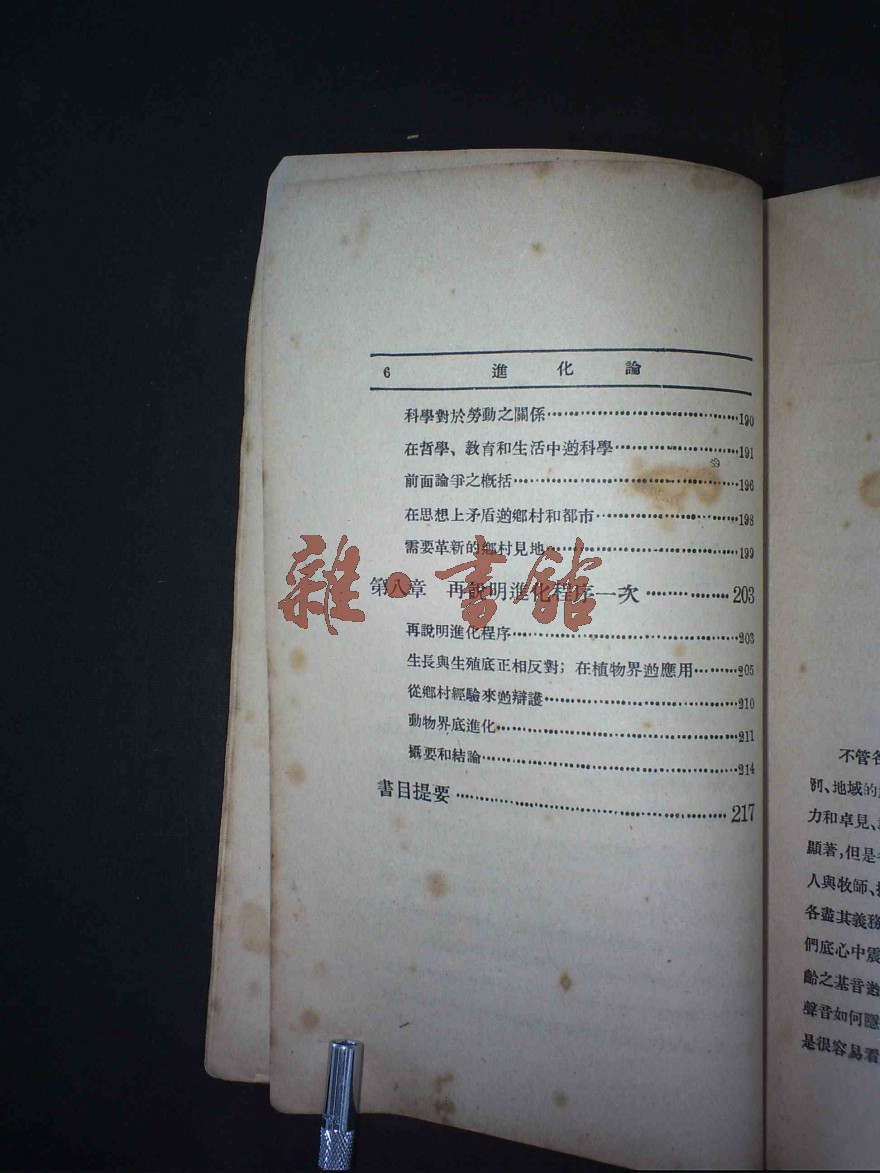 6 進化論
科學對於勞動之關係 190
在哲學、教育和生活中的科學 191
前面論爭之概括 196
在思想上矛盾的鄉村和都市 198
需要革新的鄉村見地 199
第八章 再說明進化程序一次 203
再說明進化程序 203
生長與生殖底正相反對；在植物界的應用 205
從鄉村經驗來的辯護 210
動物界底進化 211
攝要和結論 214
書目提要 217
雜·書館
不管各
例、地域的
力和卓見、
顯著，但是
人與牧師、
各盡其義務
們底心中震
齡之基音
聲音如何隱
是很容易看